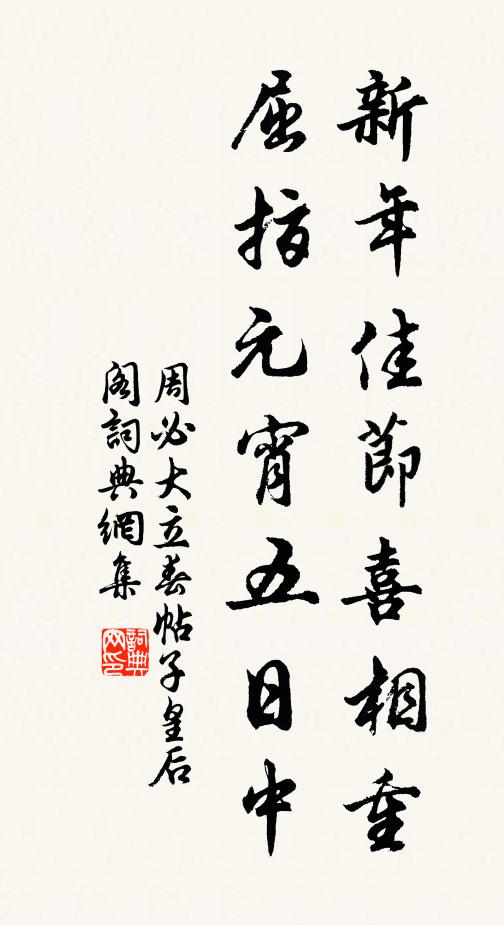 新年佳節喜相重
屈指元宵五日中
周必大立春帖子皇后
閣詞典網集
詞典网印